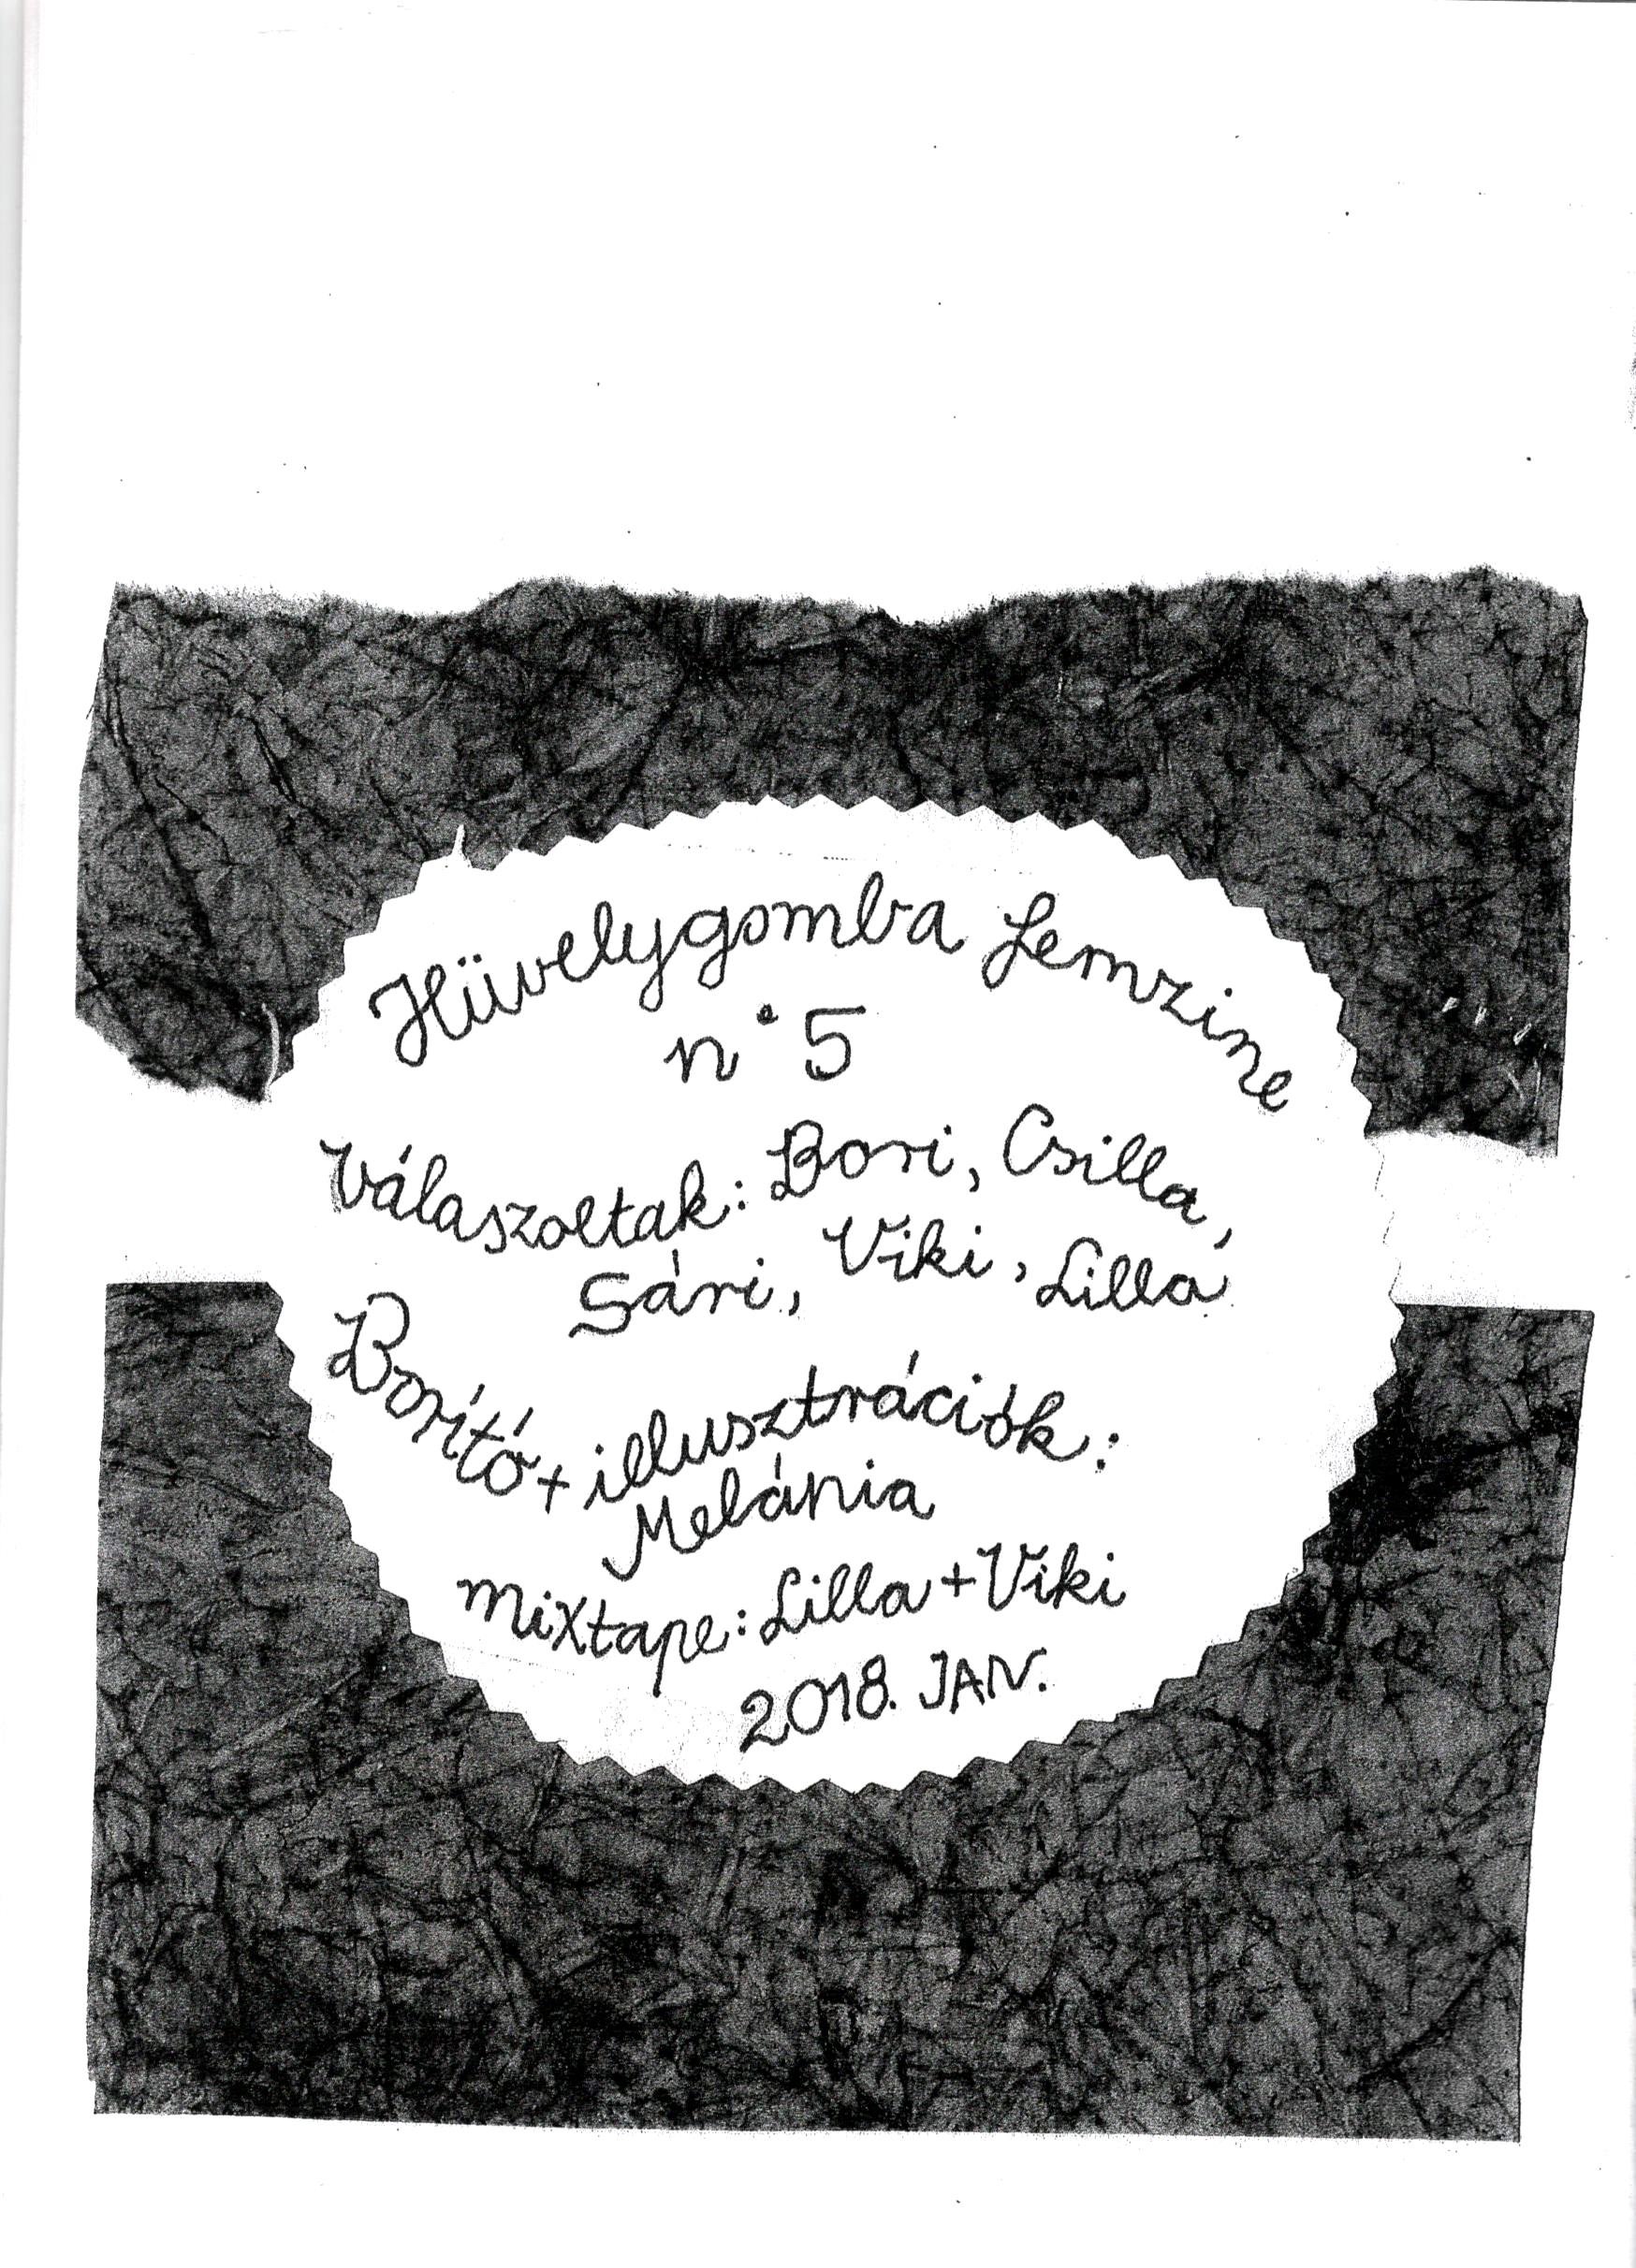 Hüvelygomba femzine
n°5
Válaszoltak: Bori, Csilla,
Sári, Viki, Lilla
Borító + illusztrációk:
Melánia
mixtape: Lilla + Viki
2018. JAN.